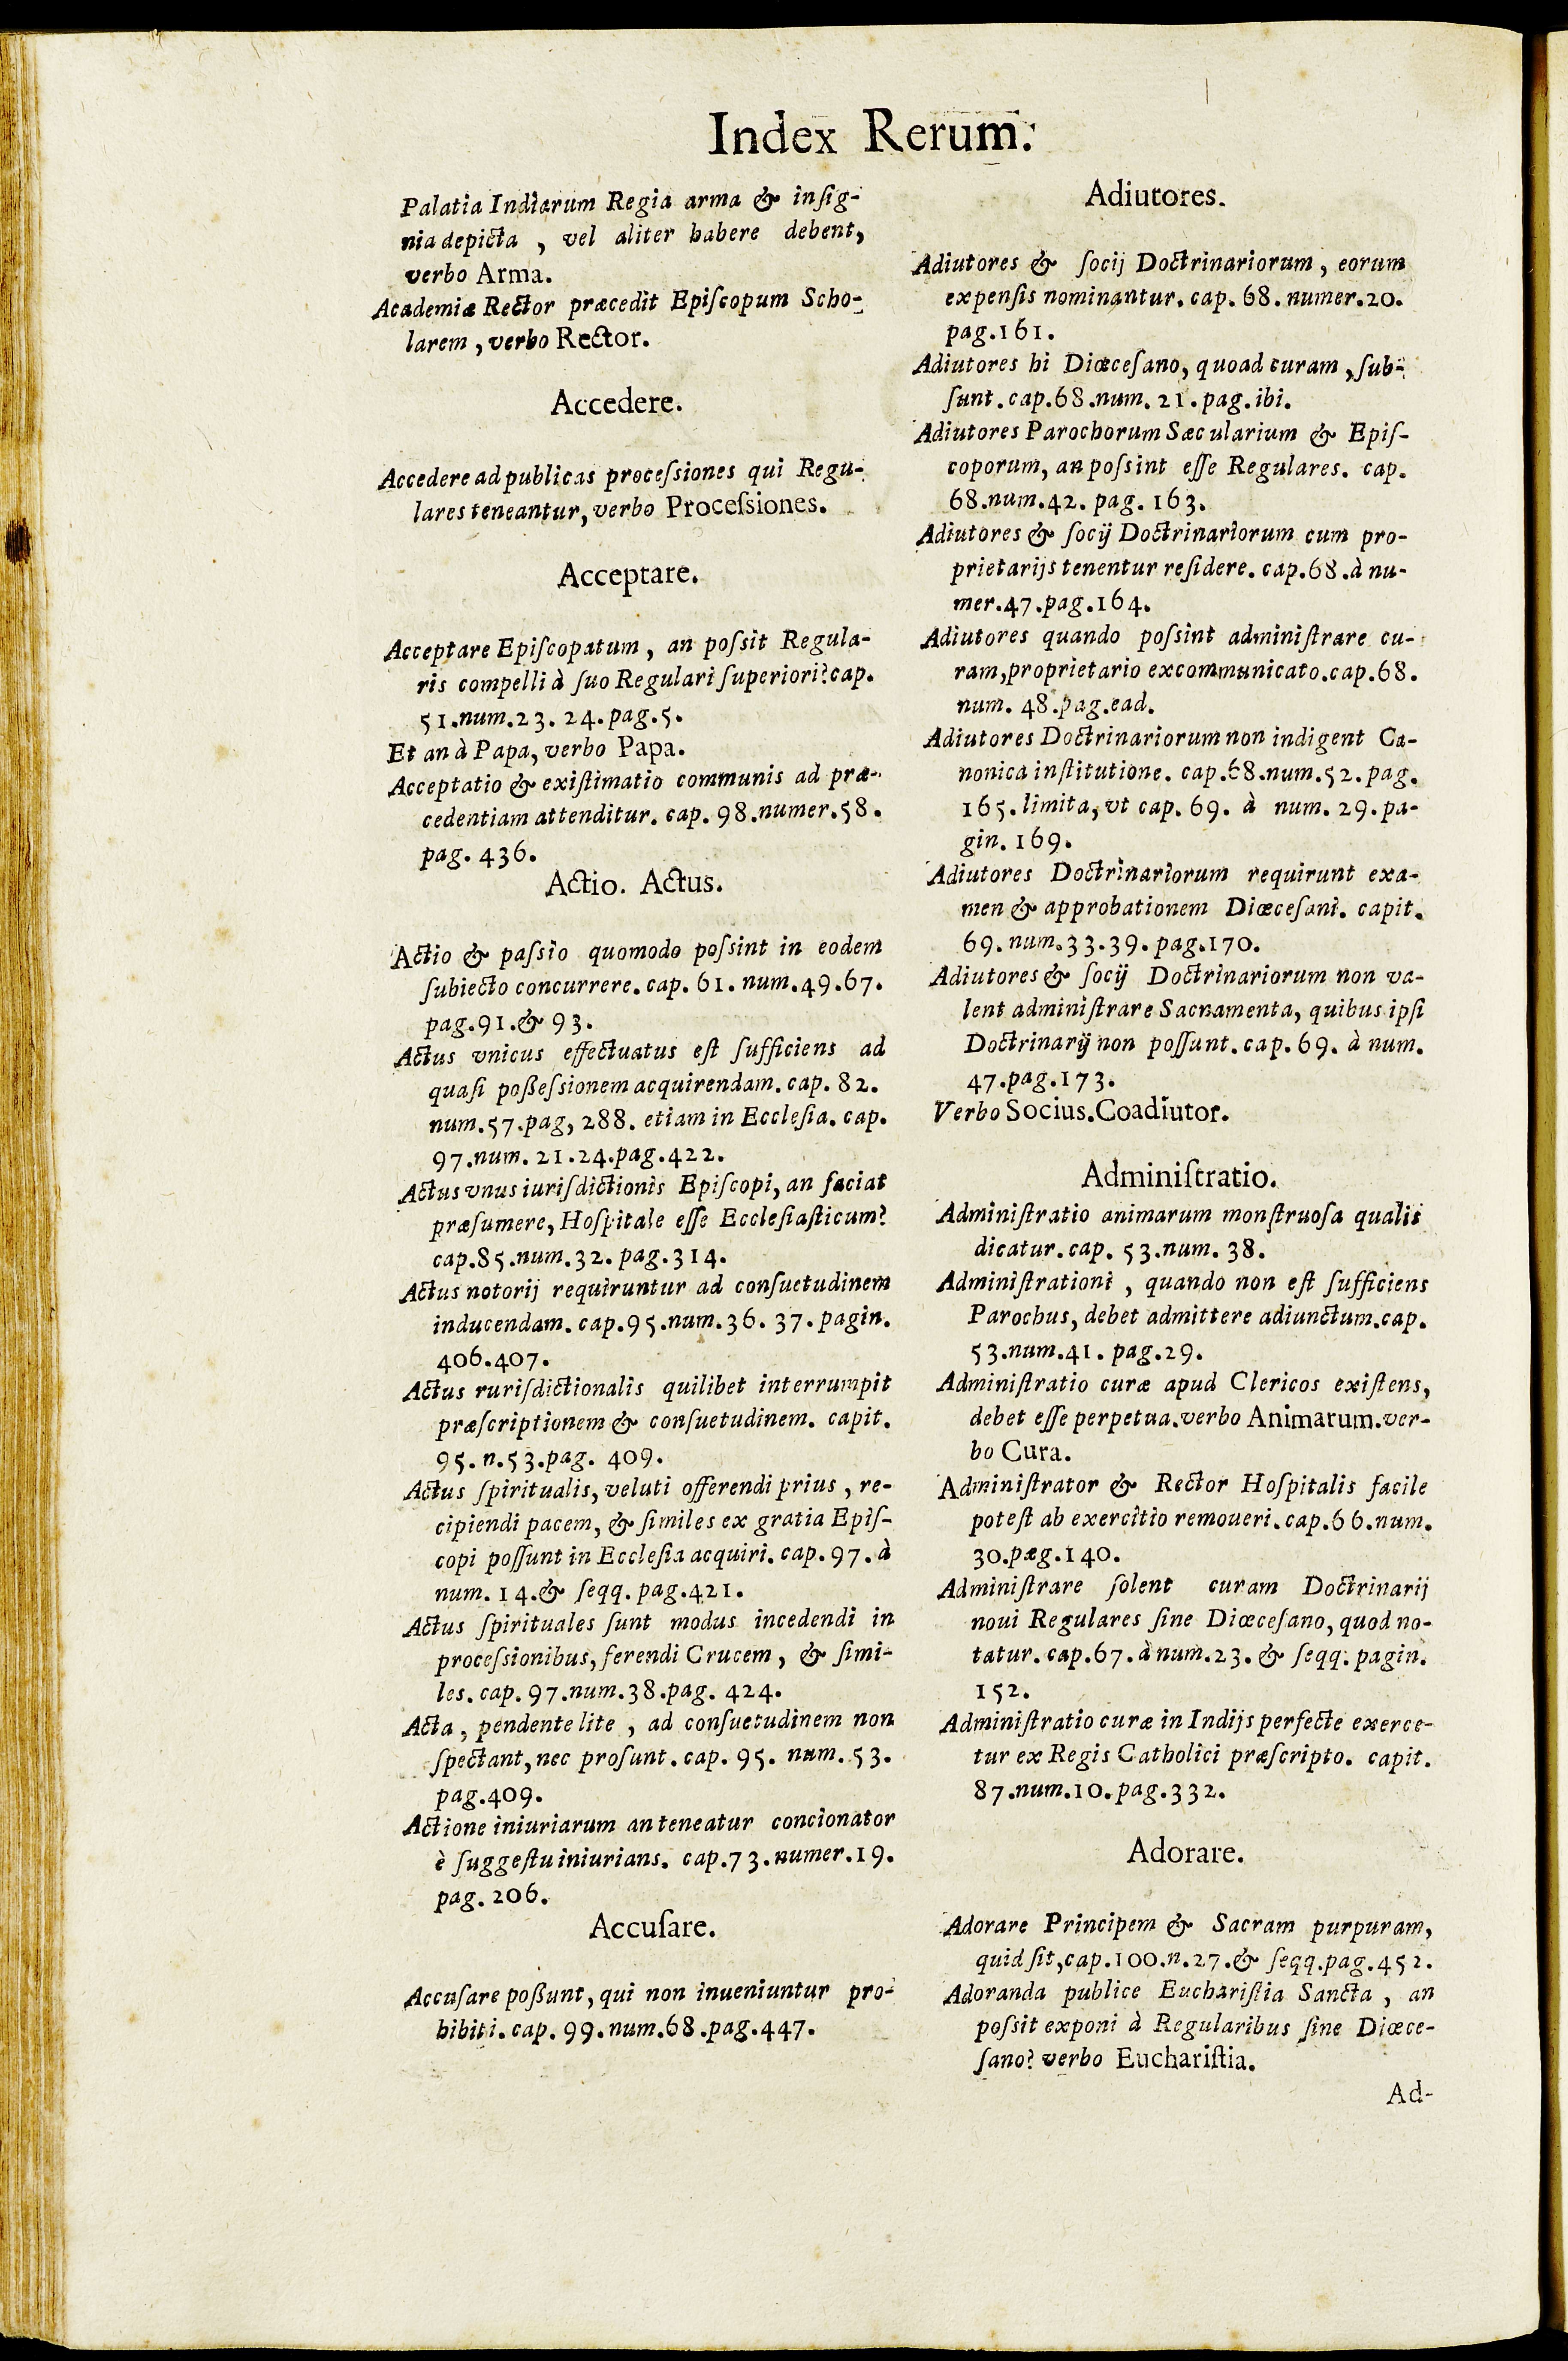 Index Rerum.
Palatia Indiarum Regia arma & inſig-
nia depicta , vel aliter habere debent,
verbo Arma.
Academiæ Rector præcedit Epiſcopum Scho-
larem , verbo Rector.
Accedere.
Accedere ad publicas proceſsiones qui Regu-
lares teneantur, verbo Proceſsiones.
Acceptare.
Acceptare Epiſcopatum , an poſsit Regula-
ris compelli à ſuo Regulari ſuperiori? cap.
51.num.23. 24.pag.5.
Et an à Papa, verbo Papa.
Acceptatio & exiſtimatio communis ad præ-
cedentiam attenditur. cap. 98.numer.58.
pag. 436.
Actio. Actus.
Actio & paſsio quomodo poſsint in eodem
ſubiecto concurrere. cap. 61. num.49.67.
pag.91.& 93.
Actus vnicus effectuatus eſt ſufficiens ad
quaſi poßeſsionem acquirendam. cap. 82.
num.57.pag, 288. etiam in Eccleſia. cap.
97.num. 21.24.pag.422.
Actus vnus iuriſdictionis Epiſcopi, an faciat
præſumere, Hoſpitale eſſe Eccleſiaſticum?
cap.85.num.32. pag.314.
Actus notorij requiruntur ad conſuetudinem
inducendam. cap.95.num.36. 37. pagin.
406.407.
Actus ruriſdictionalis quilibet interrumpit
præſcriptionem & conſuetudinem. capit.
95. n.53.pag. 409.
Actus ſpiritualis, veluti offerendi prius , re-
cipiendi pacem, & ſimiles ex gratia Epiſ-
copi poſſunt in Eccleſia acquiri. cap. 97. à
num. 14.& ſeqq. pag.421.
Actus ſpirituales ſunt modus incedendi in
proceſsionibus, ferendi Crucem , & ſimi-
les. cap. 97.num.38.pag. 424.
Acta , pendente lite , ad conſuetudinem non
ſpectant, nec proſunt. cap. 95. num. 53.
pag.409.
Actione iniuriarum an teneatur concionator
è ſuggeſtu iniurians. cap.73.numer.19.
pag. 206.
Accuſare.
Accuſare poßunt, qui non inueniuntur pro-
hibiti. cap. 99.num.68.pag.447.
Adiutores.
Adiutores & ſocij Doctrinariorum , eorum
expenſis nominantur. cap. 68. numer.20.
pag.161.
Adiutores hi Diœceſano, quoad curam , ſub-
ſunt. cap.68.num. 21.pag. ibi.
Adiutores Parochorum Sæcularium & Epiſ-
coporum, an poſsint eſſe Regulares. cap.
68.num.42. pag. 163.
Adiutores & ſocij Doctrinariorum cum pro-
prietarijs tenentur reſidere. cap.68.à nu-
mer.47.pag.164.
Adiutores quando poſsint adminiſtrare cu-
ram, proprietario excommunicato.cap.68.
num. 48.pag.ead.
Adiutores Doctrinariorum non indigent Ca-
nonica inſtitutione. cap.68.num.52. pag.
165. limita, vt cap. 69. à num. 29. pa-
gin. 169.
Adiutores Doctrinariorum requirunt exa-
men & approbationem Diœceſani. capit.
69. num.33.39. pag.170.
Adiutores & ſocij Doctrinariorum non va-
lent adminiſtrare Sacramenta, quibus ipſi
Doctrinarij non poſſunt. cap. 69. à num.
47.pag.173.
Verbo Socius.Coadiutor.
Adminiſtratio.
Adminiſtratio animarum monſtruoſa qualis
dicatur. cap. 53.num. 38.
Adminiſtrationi , quando non eſt ſufficiens
Parochus, debet admittere adiunctum.cap.
53.num.41. pag.29.
Adminiſtratio curæ apud Clericos exiſtens,
debet eſſe perpetua.verbo Animarum.ver-
bo Cura.
Adminiſtrator & Rector Hoſpitalis facile
poteſt ab exercitio remoueri. cap.66.num.
30.pæg.140.
Adminiſtrare ſolent curam Doctrinarij
noui Regulares ſine Diœceſano, quod no-
tatur. cap.67. à num.23. & ſeqq. pagin.
152.
Adminiſtratio curæ in Indijs perfecte exerce-
tur ex Regis Catholici præſcripto. capit.
87.num.10. pag.332.
Adorare.
Adorare Principem & Sacram purpuram,
quid ſit, cap.100.n.27.& ſeqq.pag.452.
Adoranda publice Euchariſtia Sancta , an
poſsit exponi à Regularibus ſine Diœce-
ſano? verbo Euchariſtia.
Ad-